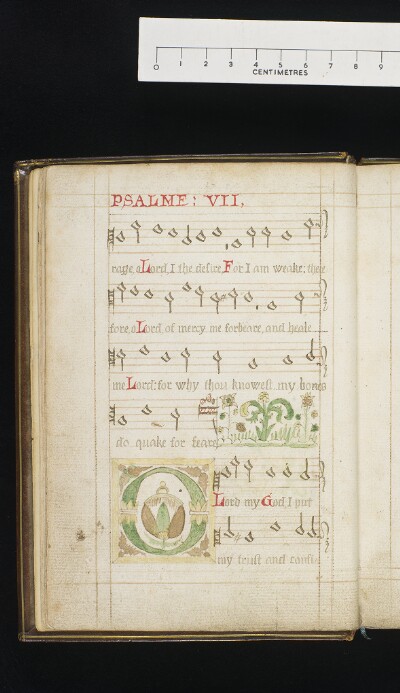 0 1 2 3 4 5 6 7 8 9
CENTIMETRES
PSALME: VII,
rage, o Lord, I the desire, For I am weake: there
fore, o Lord, of mercy me forbeare, and heale
me Lord: for why thou knowest my bones
do quake for feare
O
Lord my God I put
my trust and confi